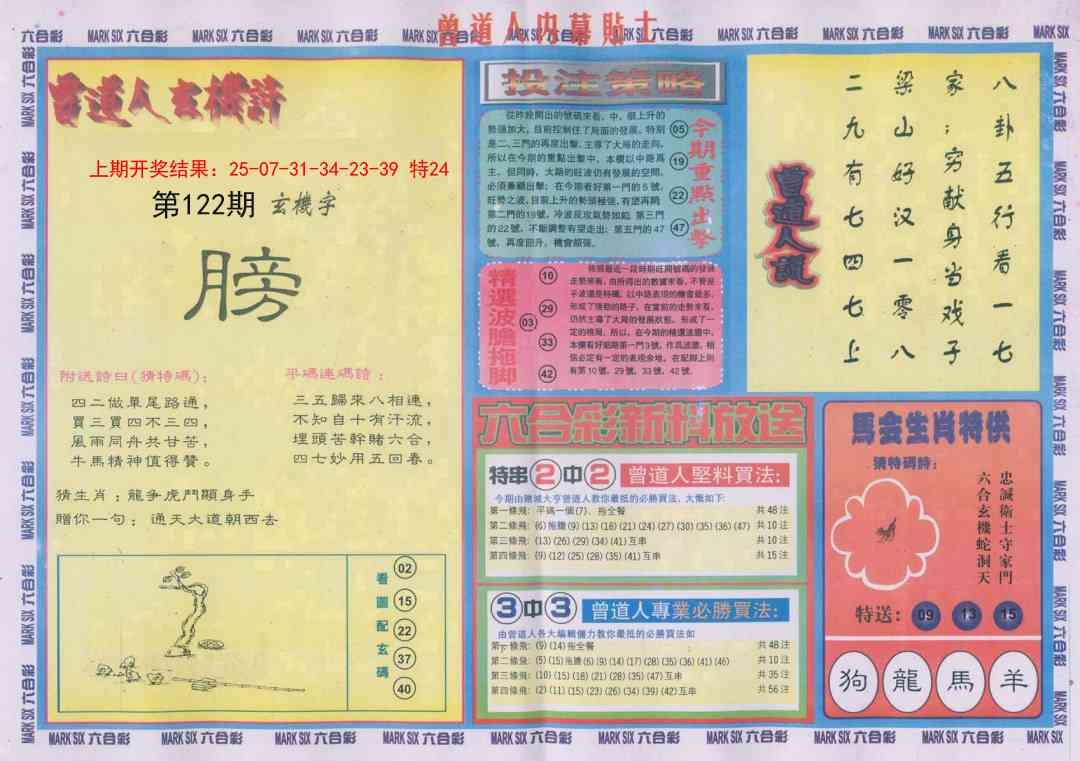 曾道人内幕貼士
曾道人玄機詩
上期开奖结果：25-07-31-34-23-39 特24
第122期 玄機字
膀
附送詩曰(猜特碼)：
四二做單尾路通，
買三買四不三四，
風雨同舟共甘苦，
牛馬精神值得贊。
平碼連碼詩：
三五歸來八相連，
不知自十有汗流，
埋頭苦幹賭六合，
四七妙用五回春。
猜生肖：龍爭虎鬥顯身手
贈你一句：通天大道朝西去
看圖配玄碼
02
15
22
37
40
投注策略
從昨段開出的號碼來看，中、個上升的
勢頭加大，目前控制住了局面的發展。特別
是二、三門的再度出擊，主導了大局的走向。
所以在今期的重點出擊中，本欄以中路爲
主，但同時，大路的旺波仍有發展的空間，
必須兼顧出擊；在今期看好第一門的5號，
旺勢之波，目前上升的勢頭極強，有望再開
第二門的19號，冷波反攻氣勢如虹，第三門
的22號，不斷調整有望走出；第五門的47
號，再度回升，機會頗強。
05
19
22
47
今期重點出擊
精選波膽拖脚
16
29
03
33
42
根據最近一段時期旺開號碼的發展
走勢來看，由所得出的數據來看，不管是
平波還是特碼，以中路表現的機會最多，
形成了強勁的路子，在當前的走勢來看，
仍然主導了大局的發展狀態，形成了一
定的格局，所以，在今期的精選波膽中，
本欄看好細路第一門3號，作爲波膽，相
信必定有一定的表現余地，在配脚上則
有第10號、29號、33號、42號。
八卦五行看一七
家；穷献身当戏子
梁山好汉一零八
二九有七四七上
曾道人說
六合彩新料放送
特串2中2 曾道人堅料買法：
今期由賭城大亨曾道人教你最抵的必勝買法，大慨如下:
第一條飛: 平碼一個(7)、拖全餐 共48注
第二條飛: (6)拖膽(9)(13)(18)(21)(24)(27)(30)(35)(36)(47) 共10注
第三條飛: (13)(26)(29)(34)(41)互串 共10注
第四條飛: (9)(12)(25)(28)(35)(41)互串 共15注
3中3 曾道人專業必勝買法：
由曾道人各大編輯僵力教你最抵的必勝買法如
第一條飛: (9)(14)拖全餐 共48注
第二條飛: (5)(15)拖膽(6)(9)(14)(17)(28)(35)(36)(41)(46) 共10注
第三條飛: (10)(15)(18)(21)(28)(35)(47)互串 共35注
第四條飛: (2)(11)(15)(23)(26)(34)(39)(42)互串 共56注
馬会生肖特供
猜特碼詩：
忠誠衛士守家門
六合玄機蛇洞天
特送：09 13 15
狗 龍 馬 羊
MARK SIX 六合彩